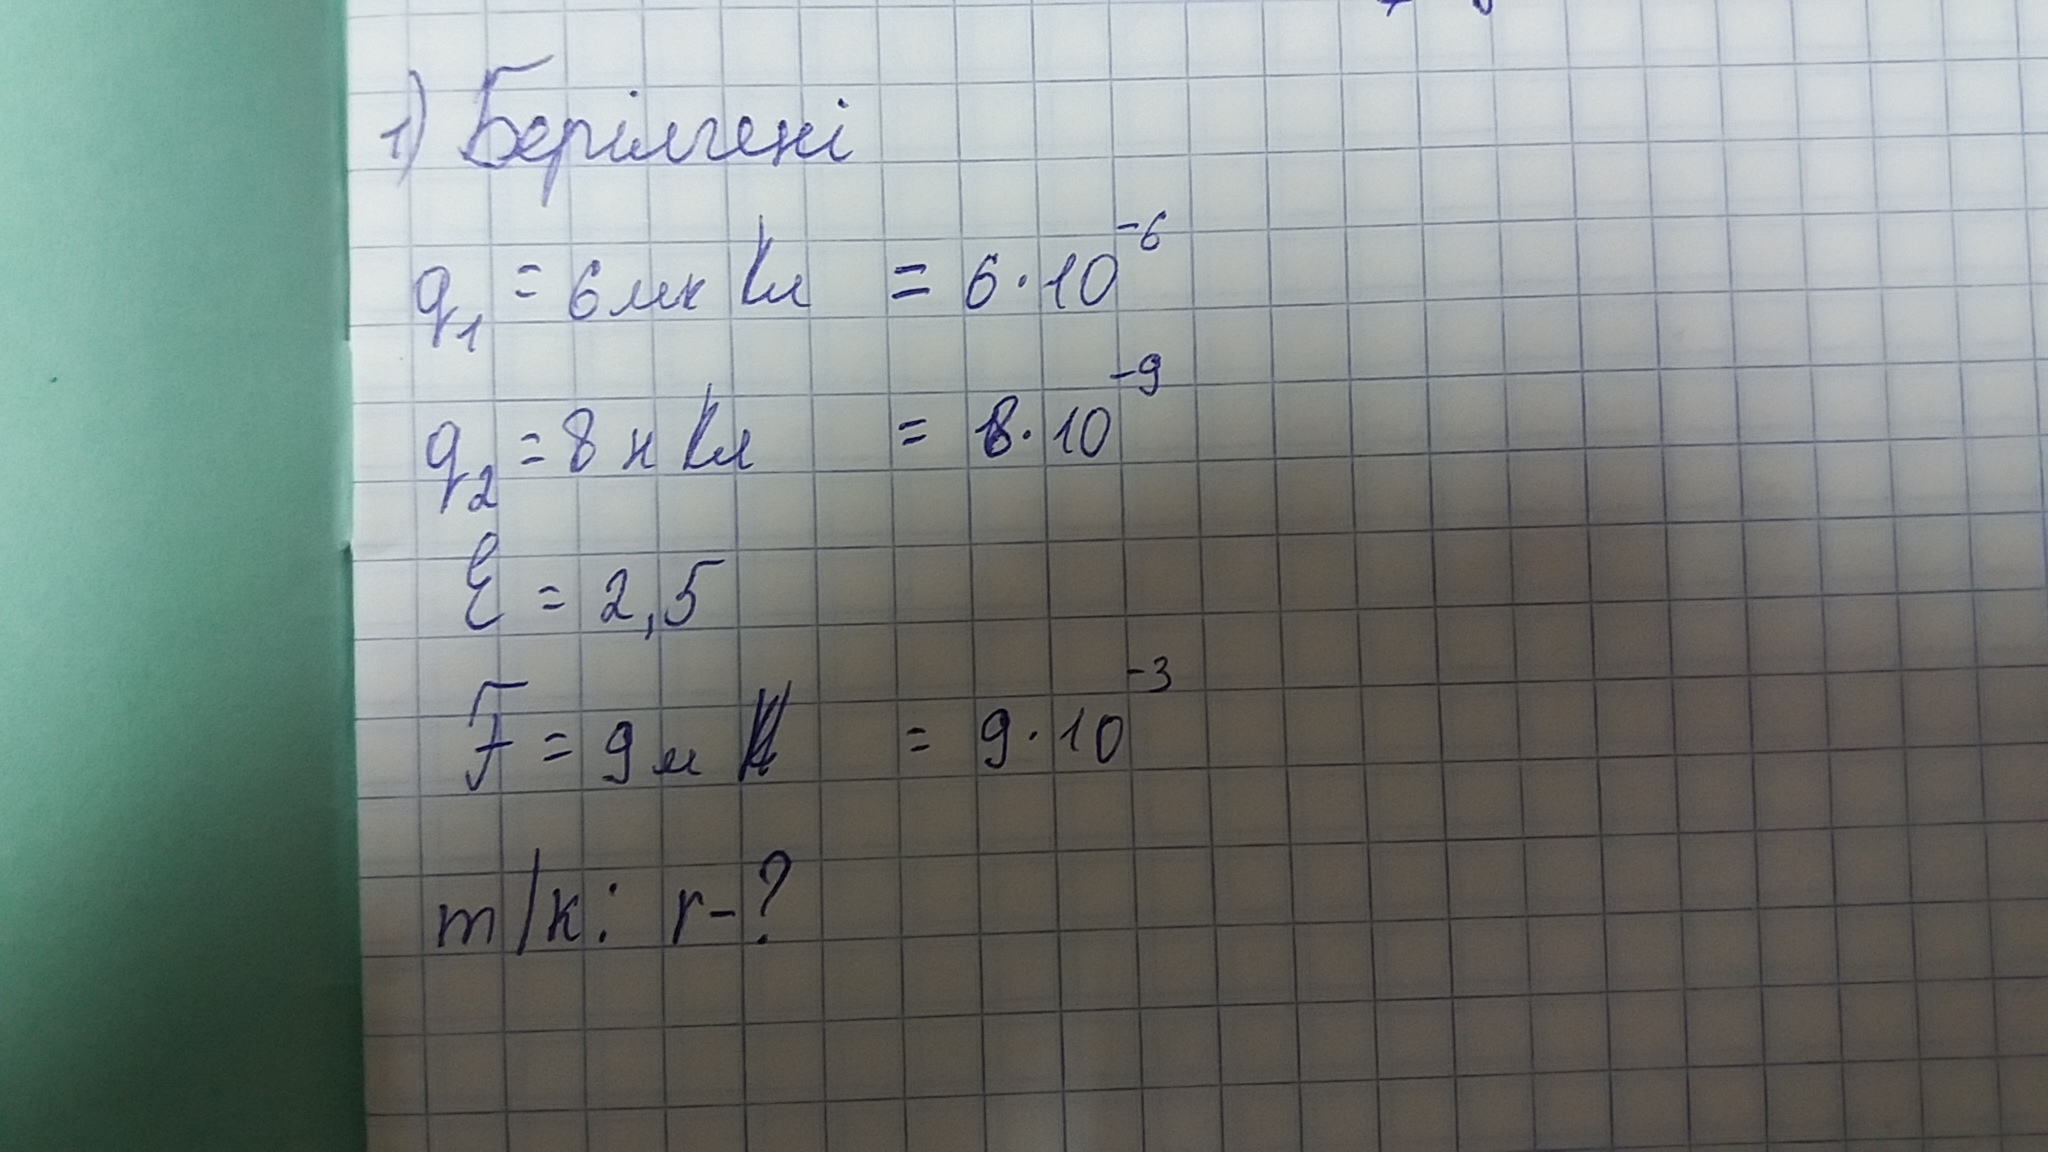 1) Берілгені
q₁ = 6 мк Кл = 6·10⁻⁶
q₂ = 8 н Кл = 8·10⁻⁹
ε = 2,5
F = 9 м Н = 9·10⁻³
т/к: r-?